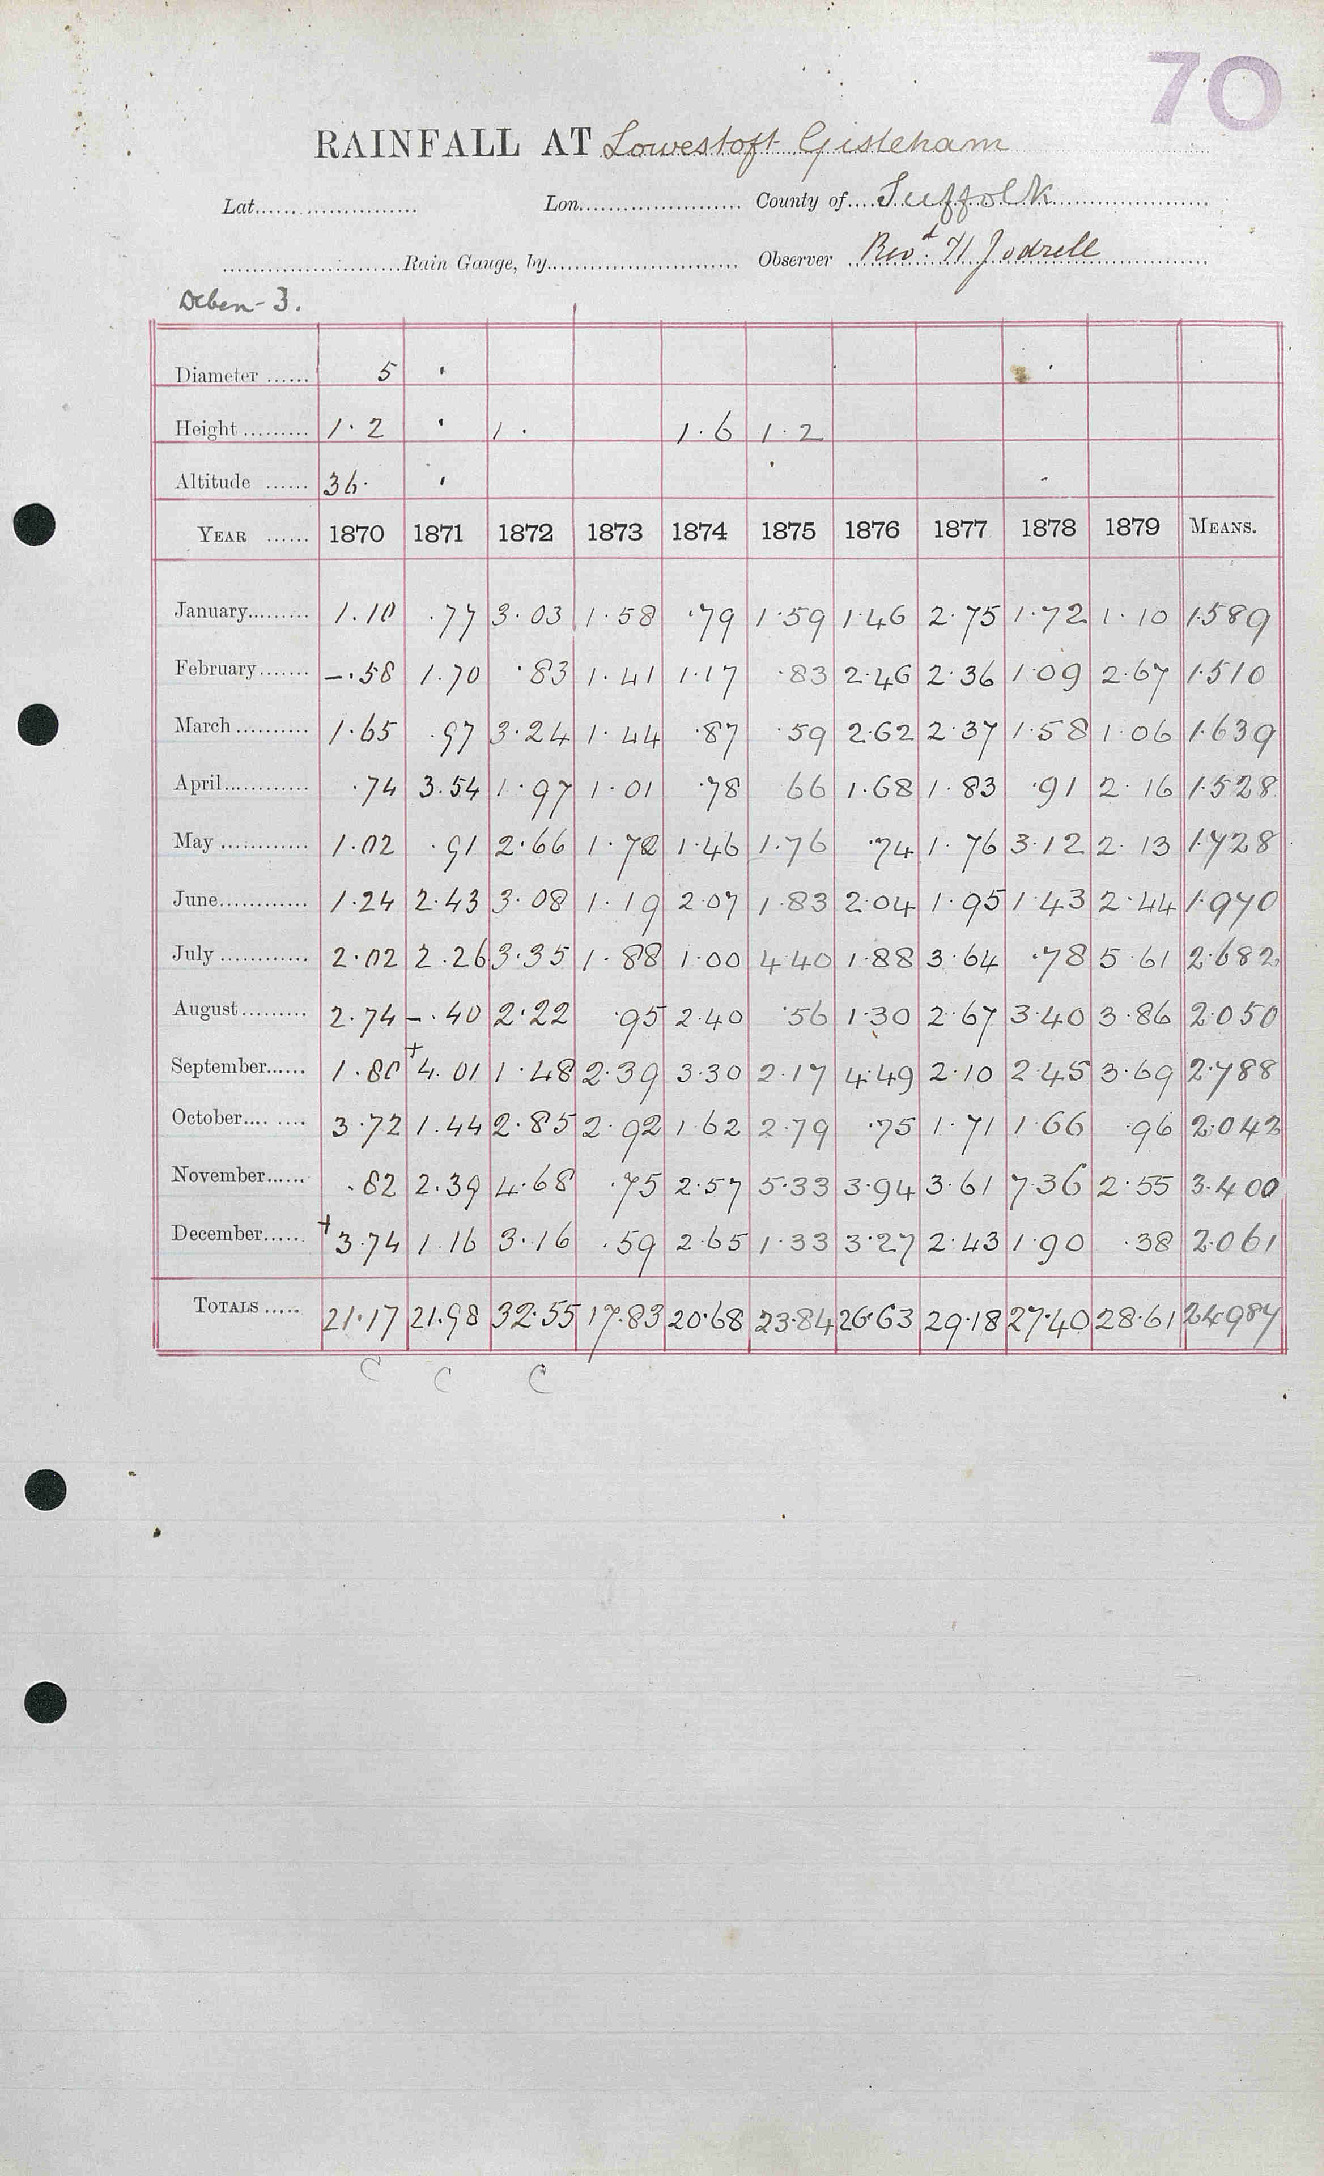 70
RAINFALL AT Lowestoft Gisleham
Lat. Lon. County of Suffolk
Rain Gauge, by Observer Revd. H Jodrell
Deben 3.
Diameter 5
Height 1.2 1. 1.6 1.2
Altitude 36.
YEAR 1870 1871 1872 1873 1874 1875 1876 1877 1878 1879 MEANS.
January 1.10 .77 3.03 1.58 .79 1.59 1.46 2.75 1.72 1.10 1.589
February -.58 1.70 .83 1.41 1.17 .83 2.46 2.36 1.09 2.67 1.510
March 1.65 .97 3.24 1.44 .87 .59 2.62 2.37 1.58 1.06 1.639
April .74 3.54 1.97 1.01 .78 66 1.68 1.83 .91 2.16 1.528
May 1.02 .91 2.66 1.72 1.46 1.76 .74 1.76 3.12 2.13 1.728
June 1.24 2.43 3.08 1.19 2.07 1.83 2.04 1.95 1.43 2.44 1.970
July 2.02 2.26 3.35 1.88 1.00 4.40 1.88 3.64 .78 5.61 2.682
August 2.74 -.40 2.22 .95 2.40 .56 1.30 2.67 3.40 3.86 2.050
September 1.80 +4.01 1.48 2.39 3.30 2.17 4.49 2.10 2.45 3.69 2.788
October 3.72 1.44 2.85 2.92 1.62 2.79 .75 1.71 1.66 .96 2.042
November .82 2.39 4.68 .75 2.57 5.33 3.94 3.61 7.36 2.55 3.400
December +3.74 1.16 3.16 .59 2.65 1.33 3.27 2.43 1.90 .38 2.061
TOTALS 21.17 21.98 32.55 17.83 20.68 23.84 26.63 29.18 27.40 28.61 24.987
C C C